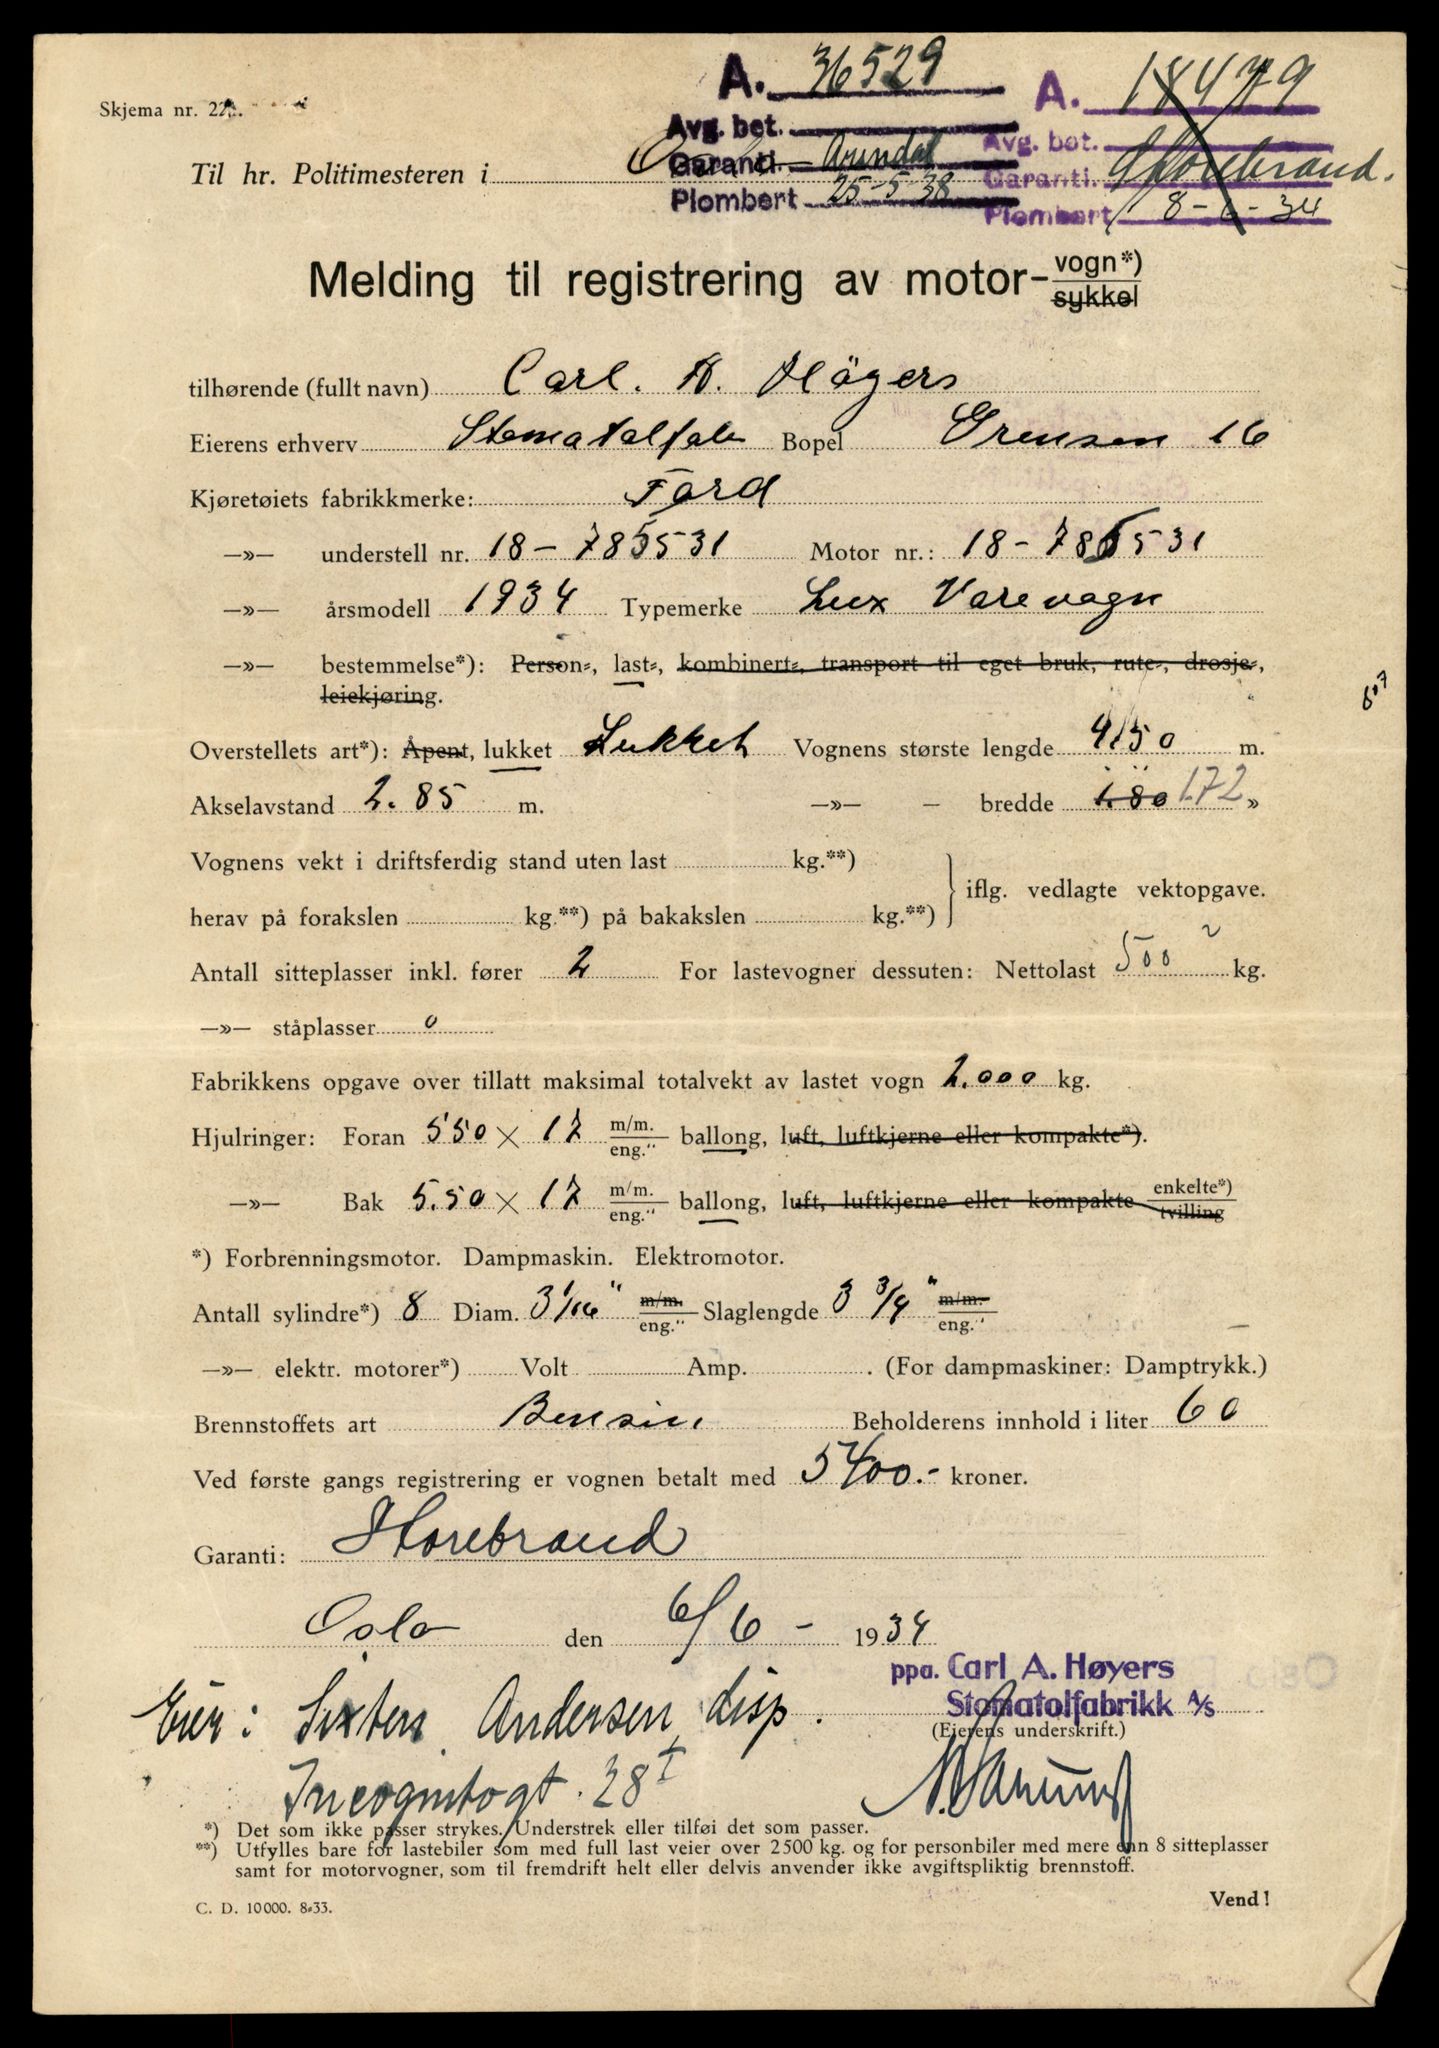 A. 36529
A. 18479
Skjema nr. 22
Avg. bet.
Avg. bet.
Til hr. Politimesteren i
Garanti. Arundal
Garanti. Storebrand.
Plombert 25-5-38
Plombert 8-6-34
Melding til registrering av motor- vogn*) sykkel
tilhørende (fullt navn) Carl. A. Höyers
Eierens erhverv Stomatolfabr Bopel Grensen 16
Kjøretøiets fabrikkmerke: Ford
—»— understell nr. 18 – 785531 Motor nr.: 18 – 785531
—»— årsmodell 1934 Typemerke Lux Varevogn
—»— bestemmelse*): Person-, last-, kombinert-, transport til eget bruk, rute-, drosje-,
leiekjøring.
Overstellets art*): Åpent, lukket Lukket Vognens største lengde 4.50 m.
Akselavstand 2.85 m. —»— – bredde 1.80 1.72 »
Vognens vekt i driftsferdig stand uten last kg.**)
iflg. vedlagte vektopgave.
herav på forakslen kg.**) på bakakslen kg.**)
Antall sitteplasser inkl. fører 2 For lastevogner dessuten: Nettolast 500 kg.
—»— ståplasser 0
Fabrikkens opgave over tillatt maksimal totalvekt av lastet vogn 2.000 kg.
Hjulringer: Foran 550 × 17 m/m. eng." ballong, luft, luftkjerne eller kompakte*).
—»— Bak 5.50 × 17 m/m. eng." ballong, luft, luftkjerne eller kompakte enkelte*) tvilling
*) Forbrenningsmotor. Dampmaskin. Elektromotor.
Antall sylindre*) 8 Diam. 3 1/16" m/m. eng." Slaglengde 3 3/4" m/m. eng."
—»— elektr. motorer*) Volt Amp. . (For dampmaskiner: Damptrykk.)
Brennstoffets art Bensin Beholderens innhold i liter 60
Ved første gangs registrering er vognen betalt med 5400.- kroner.
Garanti: Storebrand
Oslo den 6/6 – 1934
ppa. Carl A. Høyers
Stomatolfabrikk A/S
Eier: Sixten Andersen, disp.
(Eierens underskrift.)
Incognitogt. 28 I
*) Det som ikke passer strykes. Understrek eller tilføi det som passer.
**) Utfylles bare for lastebiler som med full last veier over 2500 kg. og for personbiler med mere enn 8 sitteplasser
samt for motorvogner, som til fremdrift helt eller delvis anvender ikke avgiftspliktig brennstoff.
C. D. 10000. 8-33.
Vend!